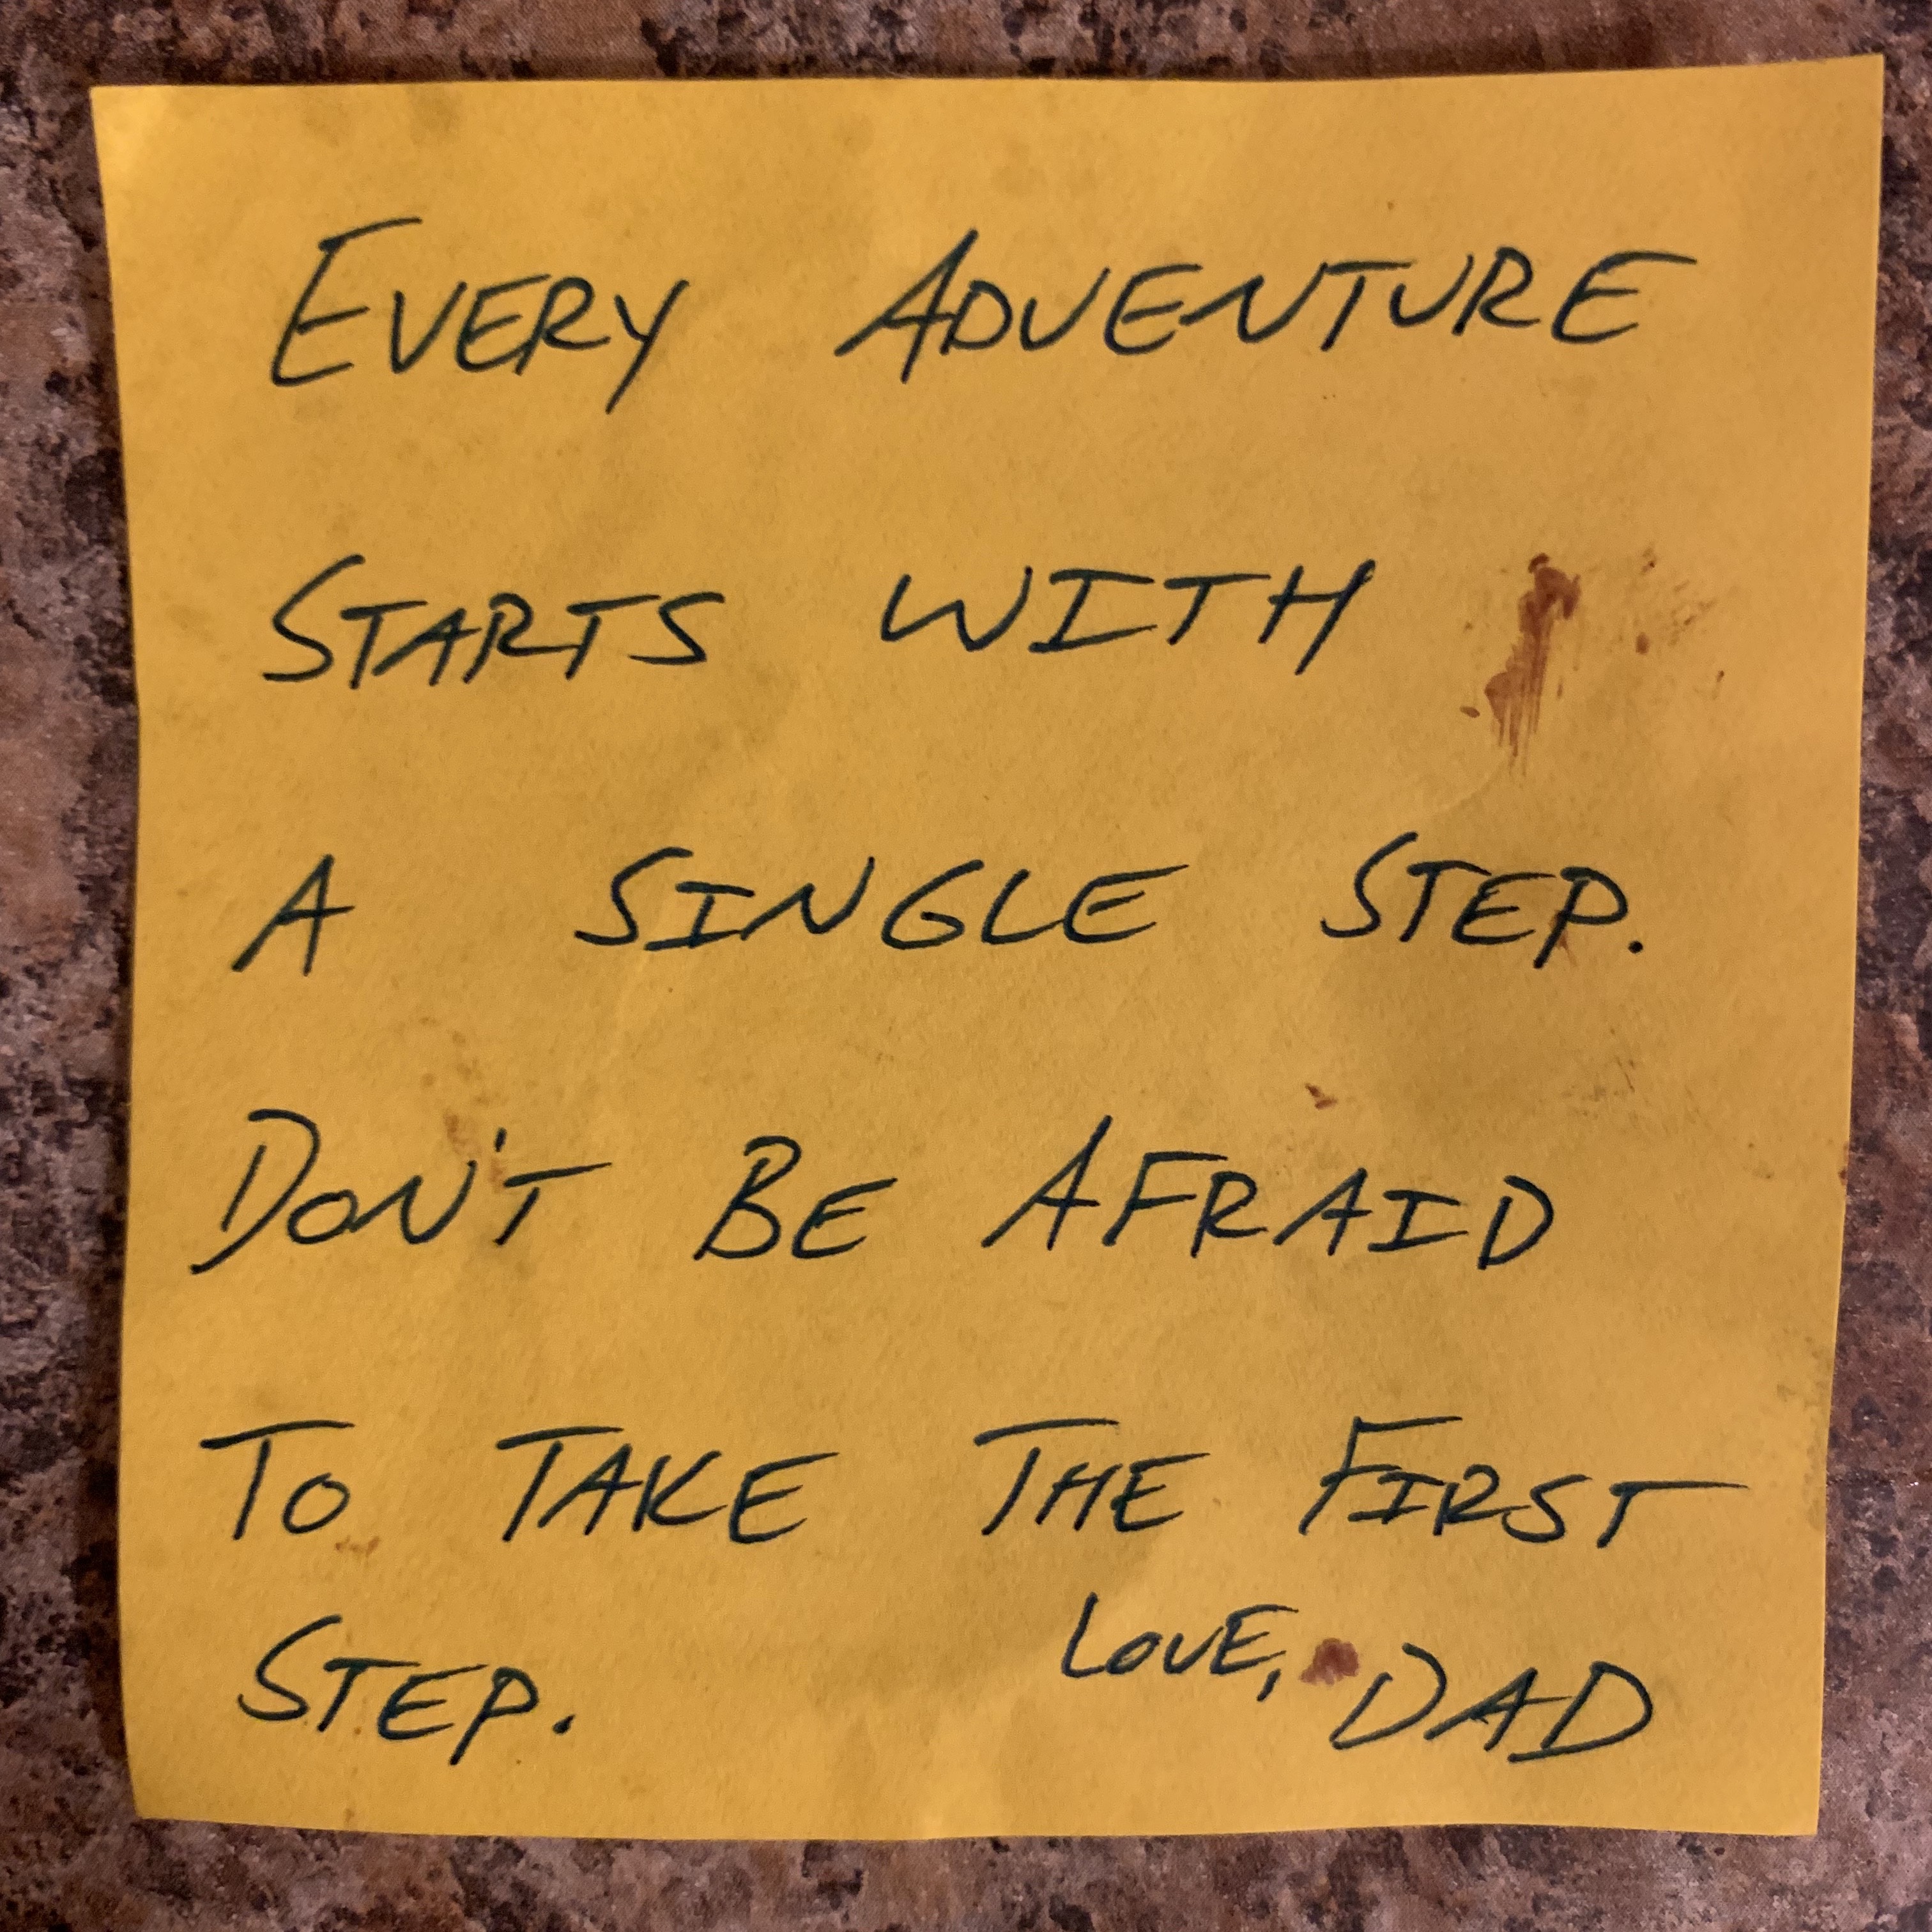 EVERY ADVENTURE
STARTS WITH
A SINGLE STEP.
DON'T BE AFRAID
TO TAKE THE FIRST
STEP.
LOVE, DAD